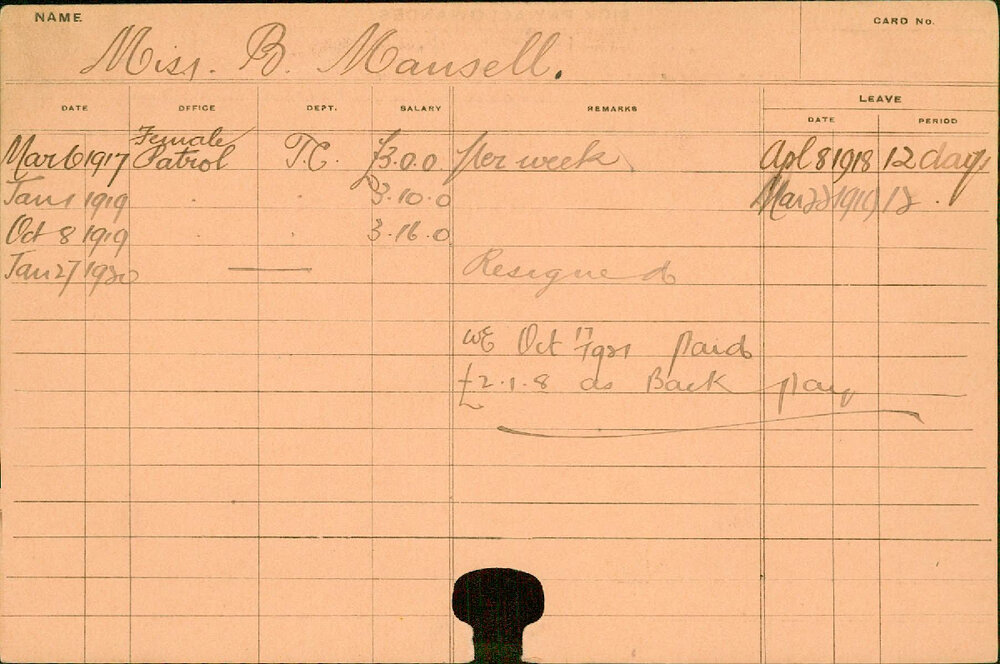 NAME
CARD No.
Miss. B. Mansell.
DATE OFFICE DEPT. SALARY REMARKS LEAVE
DATE PERIOD
Female
Mar 6 1917 Patrol T.C. £3.0.0 per week Apl 8 1918 12 days
Jan 1 1919 3.10.0 Mar 1919 12
Oct 8 1919 3.16.0
Jan 27 1920 Resigned
WE Oct 17 1921 paid
£2.1.8 as Back pay